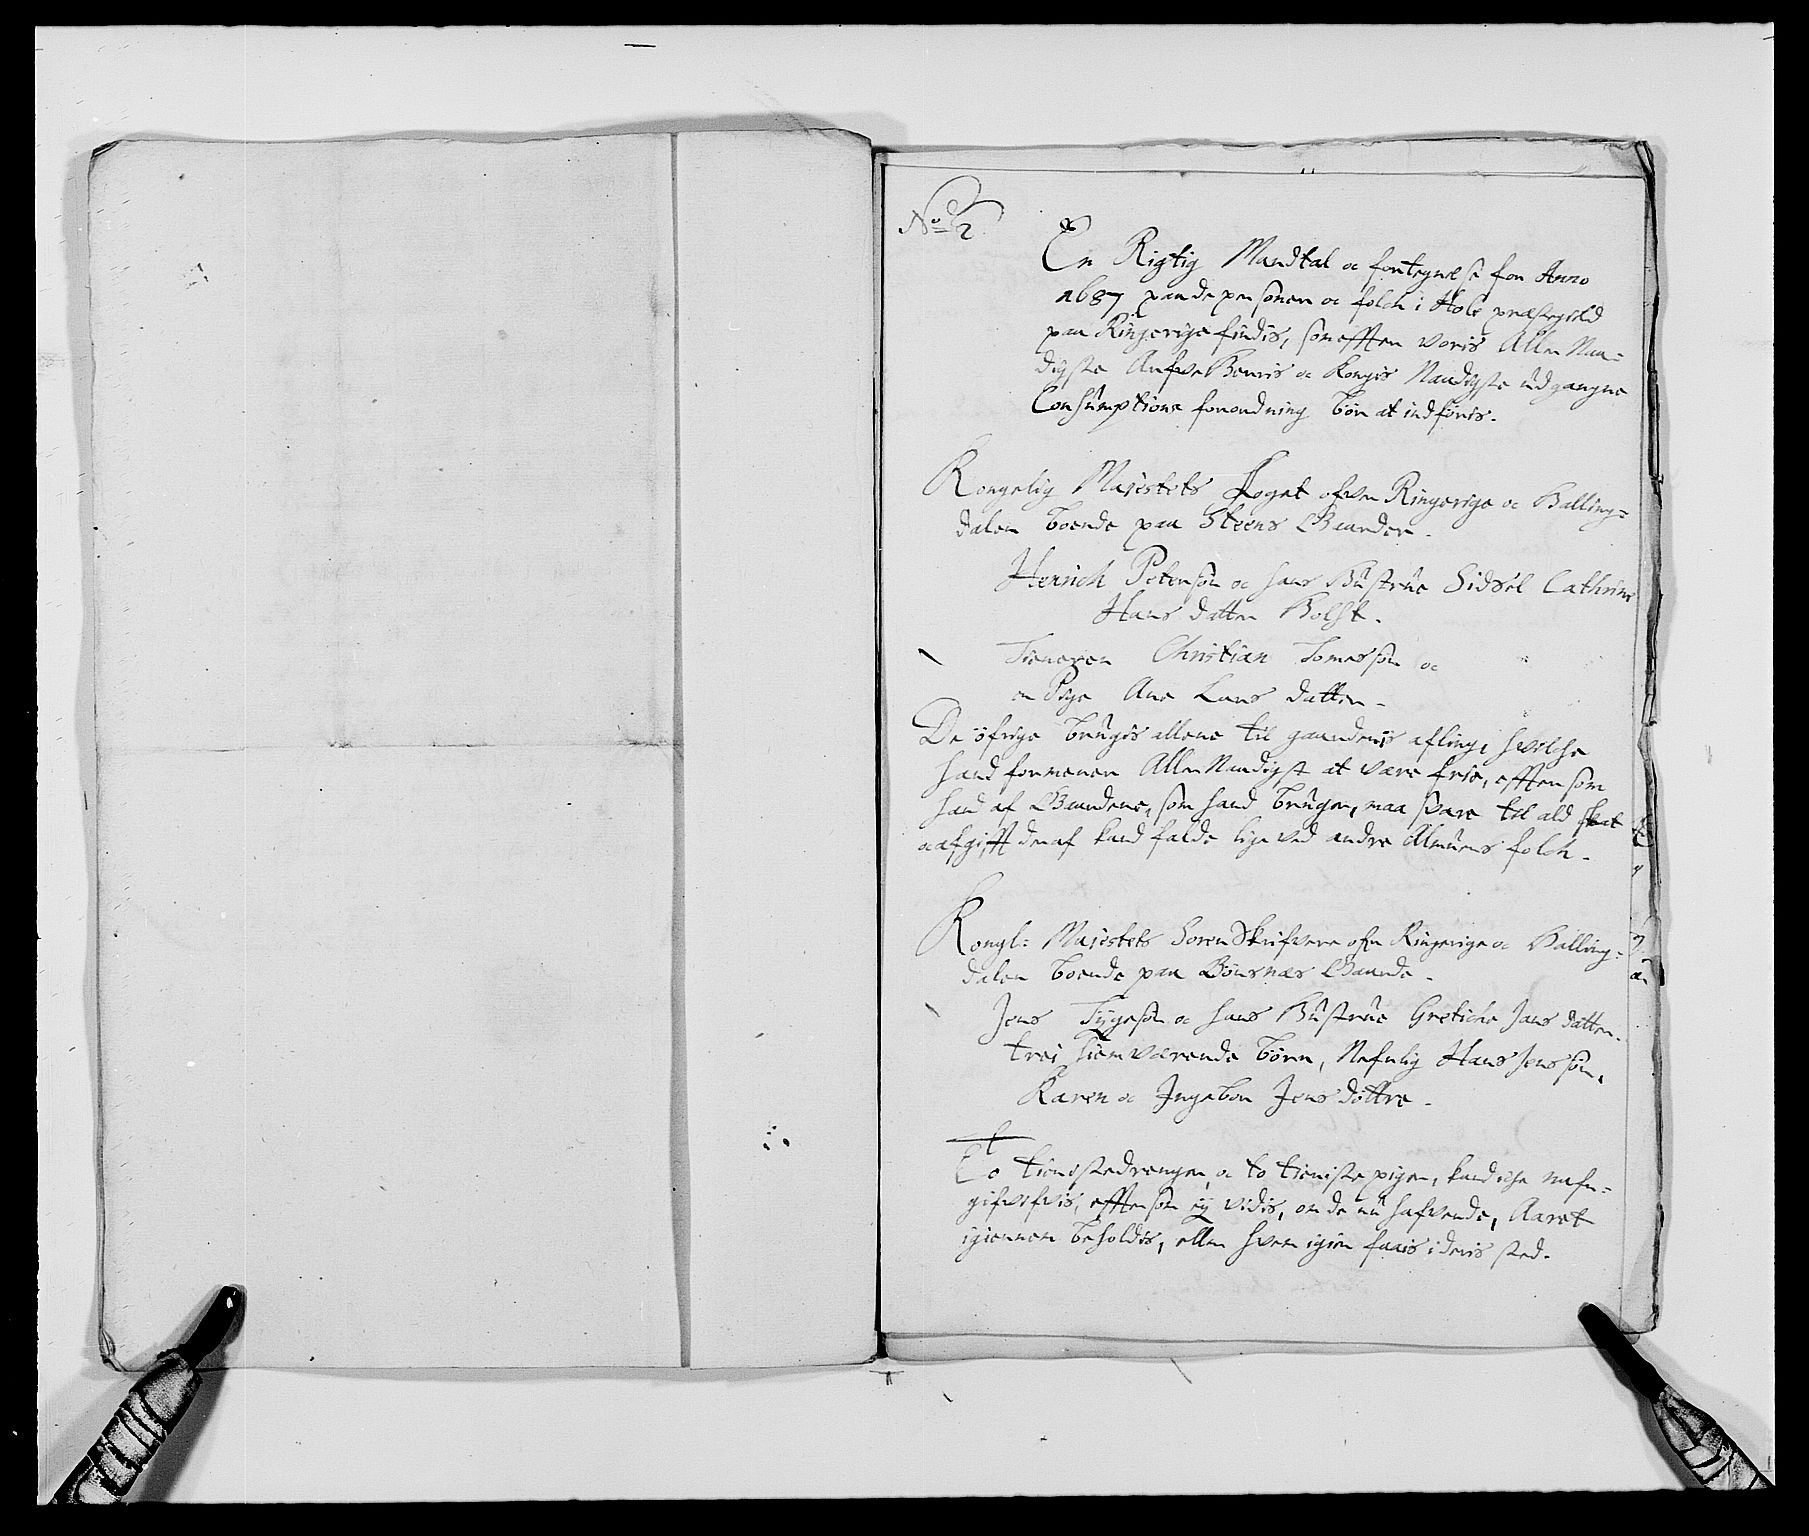 No 2
En Rigtig Mandtal oc fortegnelse for Anno
1687 paa de personer oc folch i Hole præstegield
paa Ringerige findis, som effter voris Aller Naa-
digste Arfve Herris oc Kongis Naadigste udgangne
Consumptions forordning bør at indføris.
Kongelig Majestets Foget ofver Ringerige oc Halling-
dalen boende paa Steens Gaarder.
Henrich Petersøn oc hans Hustrue Sidsel Cathrine
Hans datter Holst.
Tieneren Christian Tomessøn oc
en Pige Ane Lars datter.
De øfrige brugis allene til gaardens afling, hvilche
hand formener Aller Naadigst at være frie, efftersom
hand af Gaardene, som hand bruger, maa svare til ald skat
oc afgifft deraf kand falde lige ved andre Almues folch.
Kongl: Majestets Soren Skrifvere ofver Ringerige oc Halling-
dalen boende paa Bønsnæs Gaarde.
Jens Tygesøn oc hans Hustrue Gretiche Jans datter.
trei hiemværende børn, Nefnlig Hans Jenssøn,
Karen oc Ingebor Jens døttre.
To tienistedrenge, oc to tieniste piger, kand iche nafn-
gifvis, efftersom ey vidis, om de nu hafvende, Aaret
igiennem beholdis, eller hvem igien faais i deris sted.